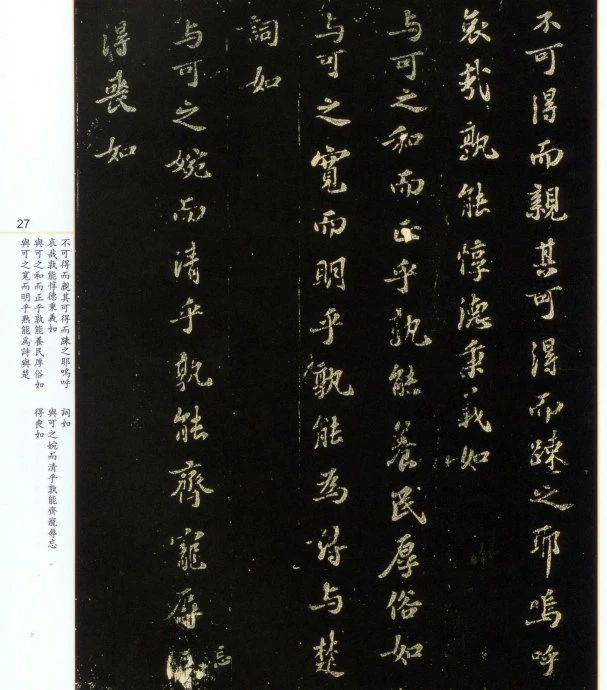 不可得而親其可得而踈之耶嗚呼
哀哉孰能惇德秉義如
与可之和而正乎孰能養民厚俗如
与可之寬而明乎孰能為詩与楚
詞如
与可之婉而清乎孰能齊寵辱忘
得喪如
27
不可得而親其可得而踈之耶嗚呼
哀哉孰能惇德秉義如
與可之和而正乎孰能養民厚俗如
與可之寬而明乎孰能為詩與楚
詞如
與可之婉而清乎孰能齊寵辱忘
得喪如